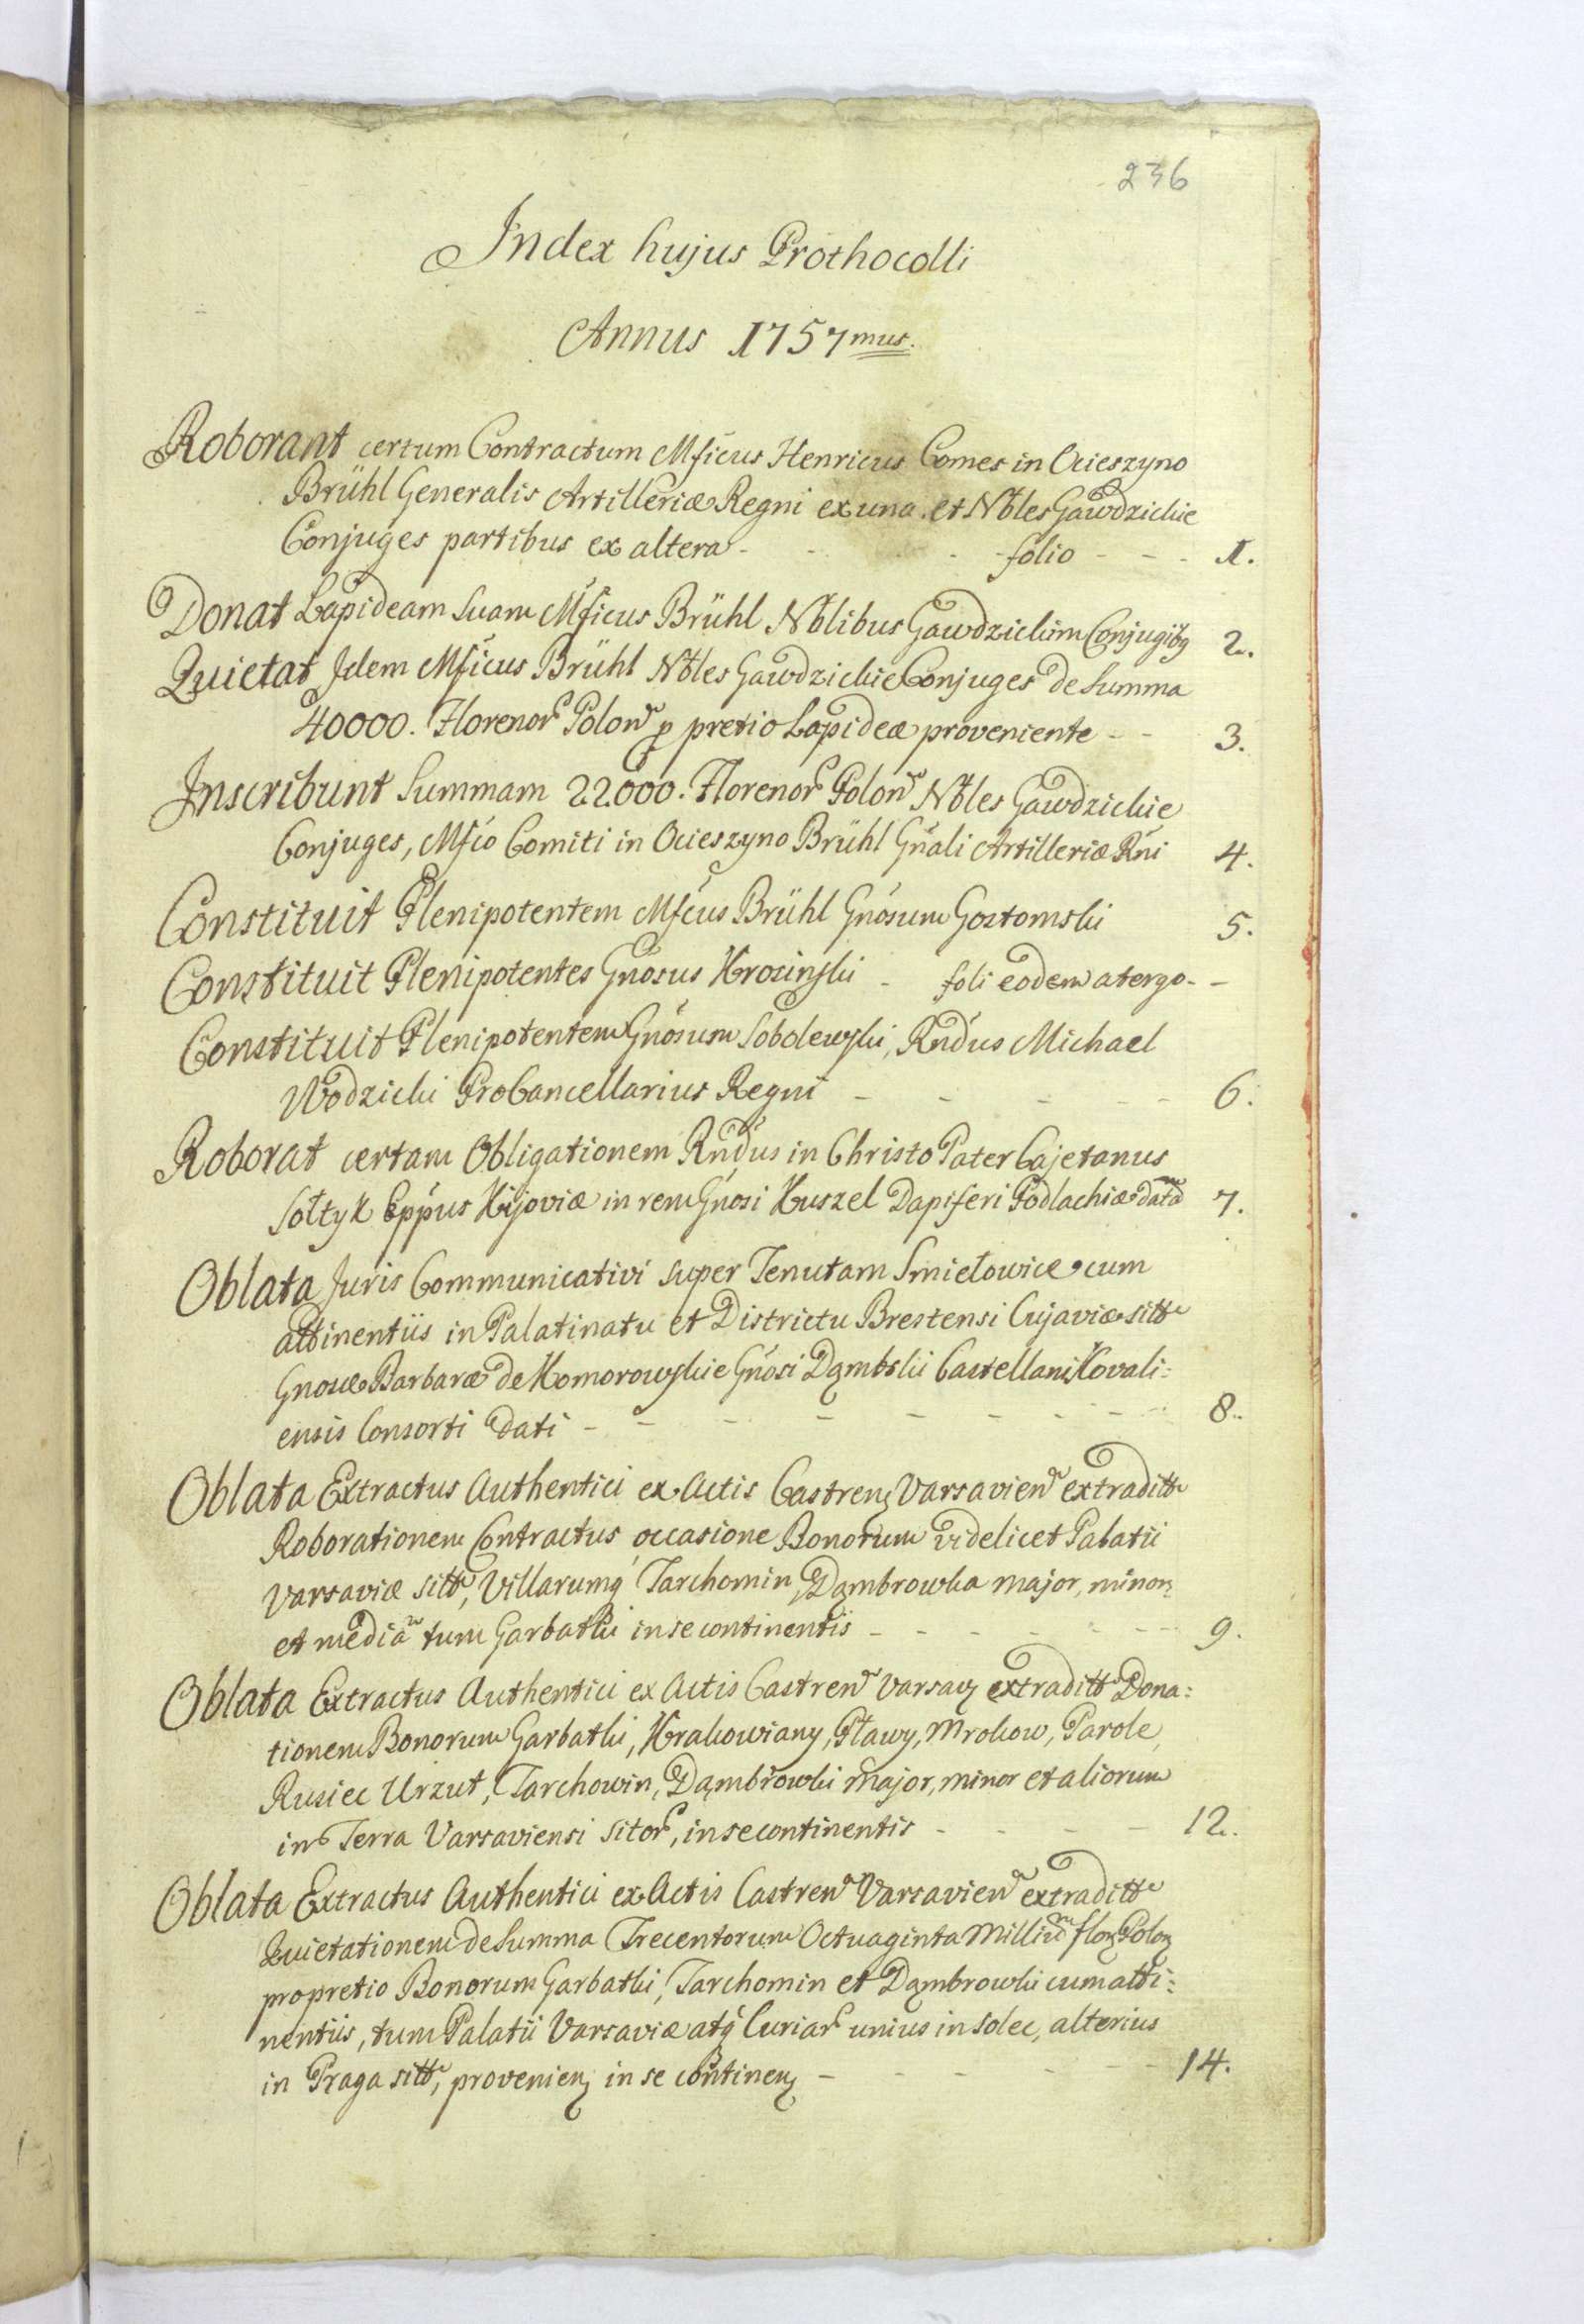 236
Index hujus Prothocolli
Annus 1757mus.
Roborant certum Contractum Mficus Henricus Comes in Ocieszyno
Brühl Generalis Artilleriæ Regni ex una et Nbles Gawdzickie
Conjuges partibus ex altera - - - folio - - - 1.
Donat Lapideam Suam Mficus Brühl Nblibus Gawdzickim Conjugibq 2.
Quietat Idem Mficus Brühl Nbles Gawdzickie Conjuges de Summa
40000. Florenor Polon p pretio Lapideæ proveniente - - 3.
Inscribunt Summam 22000. Florenor Polon Nbles Gawdzickie
Conjuges, Mfco Comiti in Ocieszyno Brühl Gnali Artilleriæ Rni 4.
Constituit Plenipotentem Mfcus Brühl Gnosum Gostomski 5.
Constituit Plenipotentes Gnosus Krosinski - foli eodem atergo - -
Constituit Plenipotentem Gnosum Sobolewski, Rndus Michael
Wodzicki ProCancellarius Regni - - - - - 6.
Roborat certam Obligationem Rndus in Christo Pater Cajetanus
Sołtyk Eppus Kijoviæ in rem Gnosi Kuszel Dapiferi Podlachiæ datã 7.
Oblata Juris Communicativi super Tenutam Smiełowice cum
attinentiis in Palatinatu et Districtu Brestensi Cujaviæ sitt
Gnosæ Barbaræ de Komorowskie Gnosi Dąmbski Castellani Kovali:
ensis Consorti dati - - - - - - - - 8.
Oblata Extractus Authentici ex Actis Castrenz Varsavien extraditt
Roborationem Contractus occasione Bonorum videlicet Palatii
Varsaviæ sitt, Villarumq Tarchomin, Dąmbrowka major, minor,
et media tum Garbatki in se continentis - - - - - 9.
Oblata Extractus Authentici ex Actis Castren Varsavz extraditt Dona:
tionem Bonorum Garbatki, Krakowiany, Pławy, Mrokow, Parole,
Rusiec Urzut, Tarchowin, Dąmbrowki major, minor et aliorum
in Terra Varsaviensi Sitor, in se continentis - - - - 12.
Oblata Extractus Authentici ex Actis Castren Varsavien extraditt
Quietationem de Summa Trecentorum Octuaginta Millium florz Polonz
pro pretio Bonorum Garbatki, Tarchomin et Dąmbrowki cum atti:
nentiis, tum Palatii Varsaviæ atq Curiar unius in Solec, alterius
in Praga sitt, provenienz in se continenz - - - - - 14.